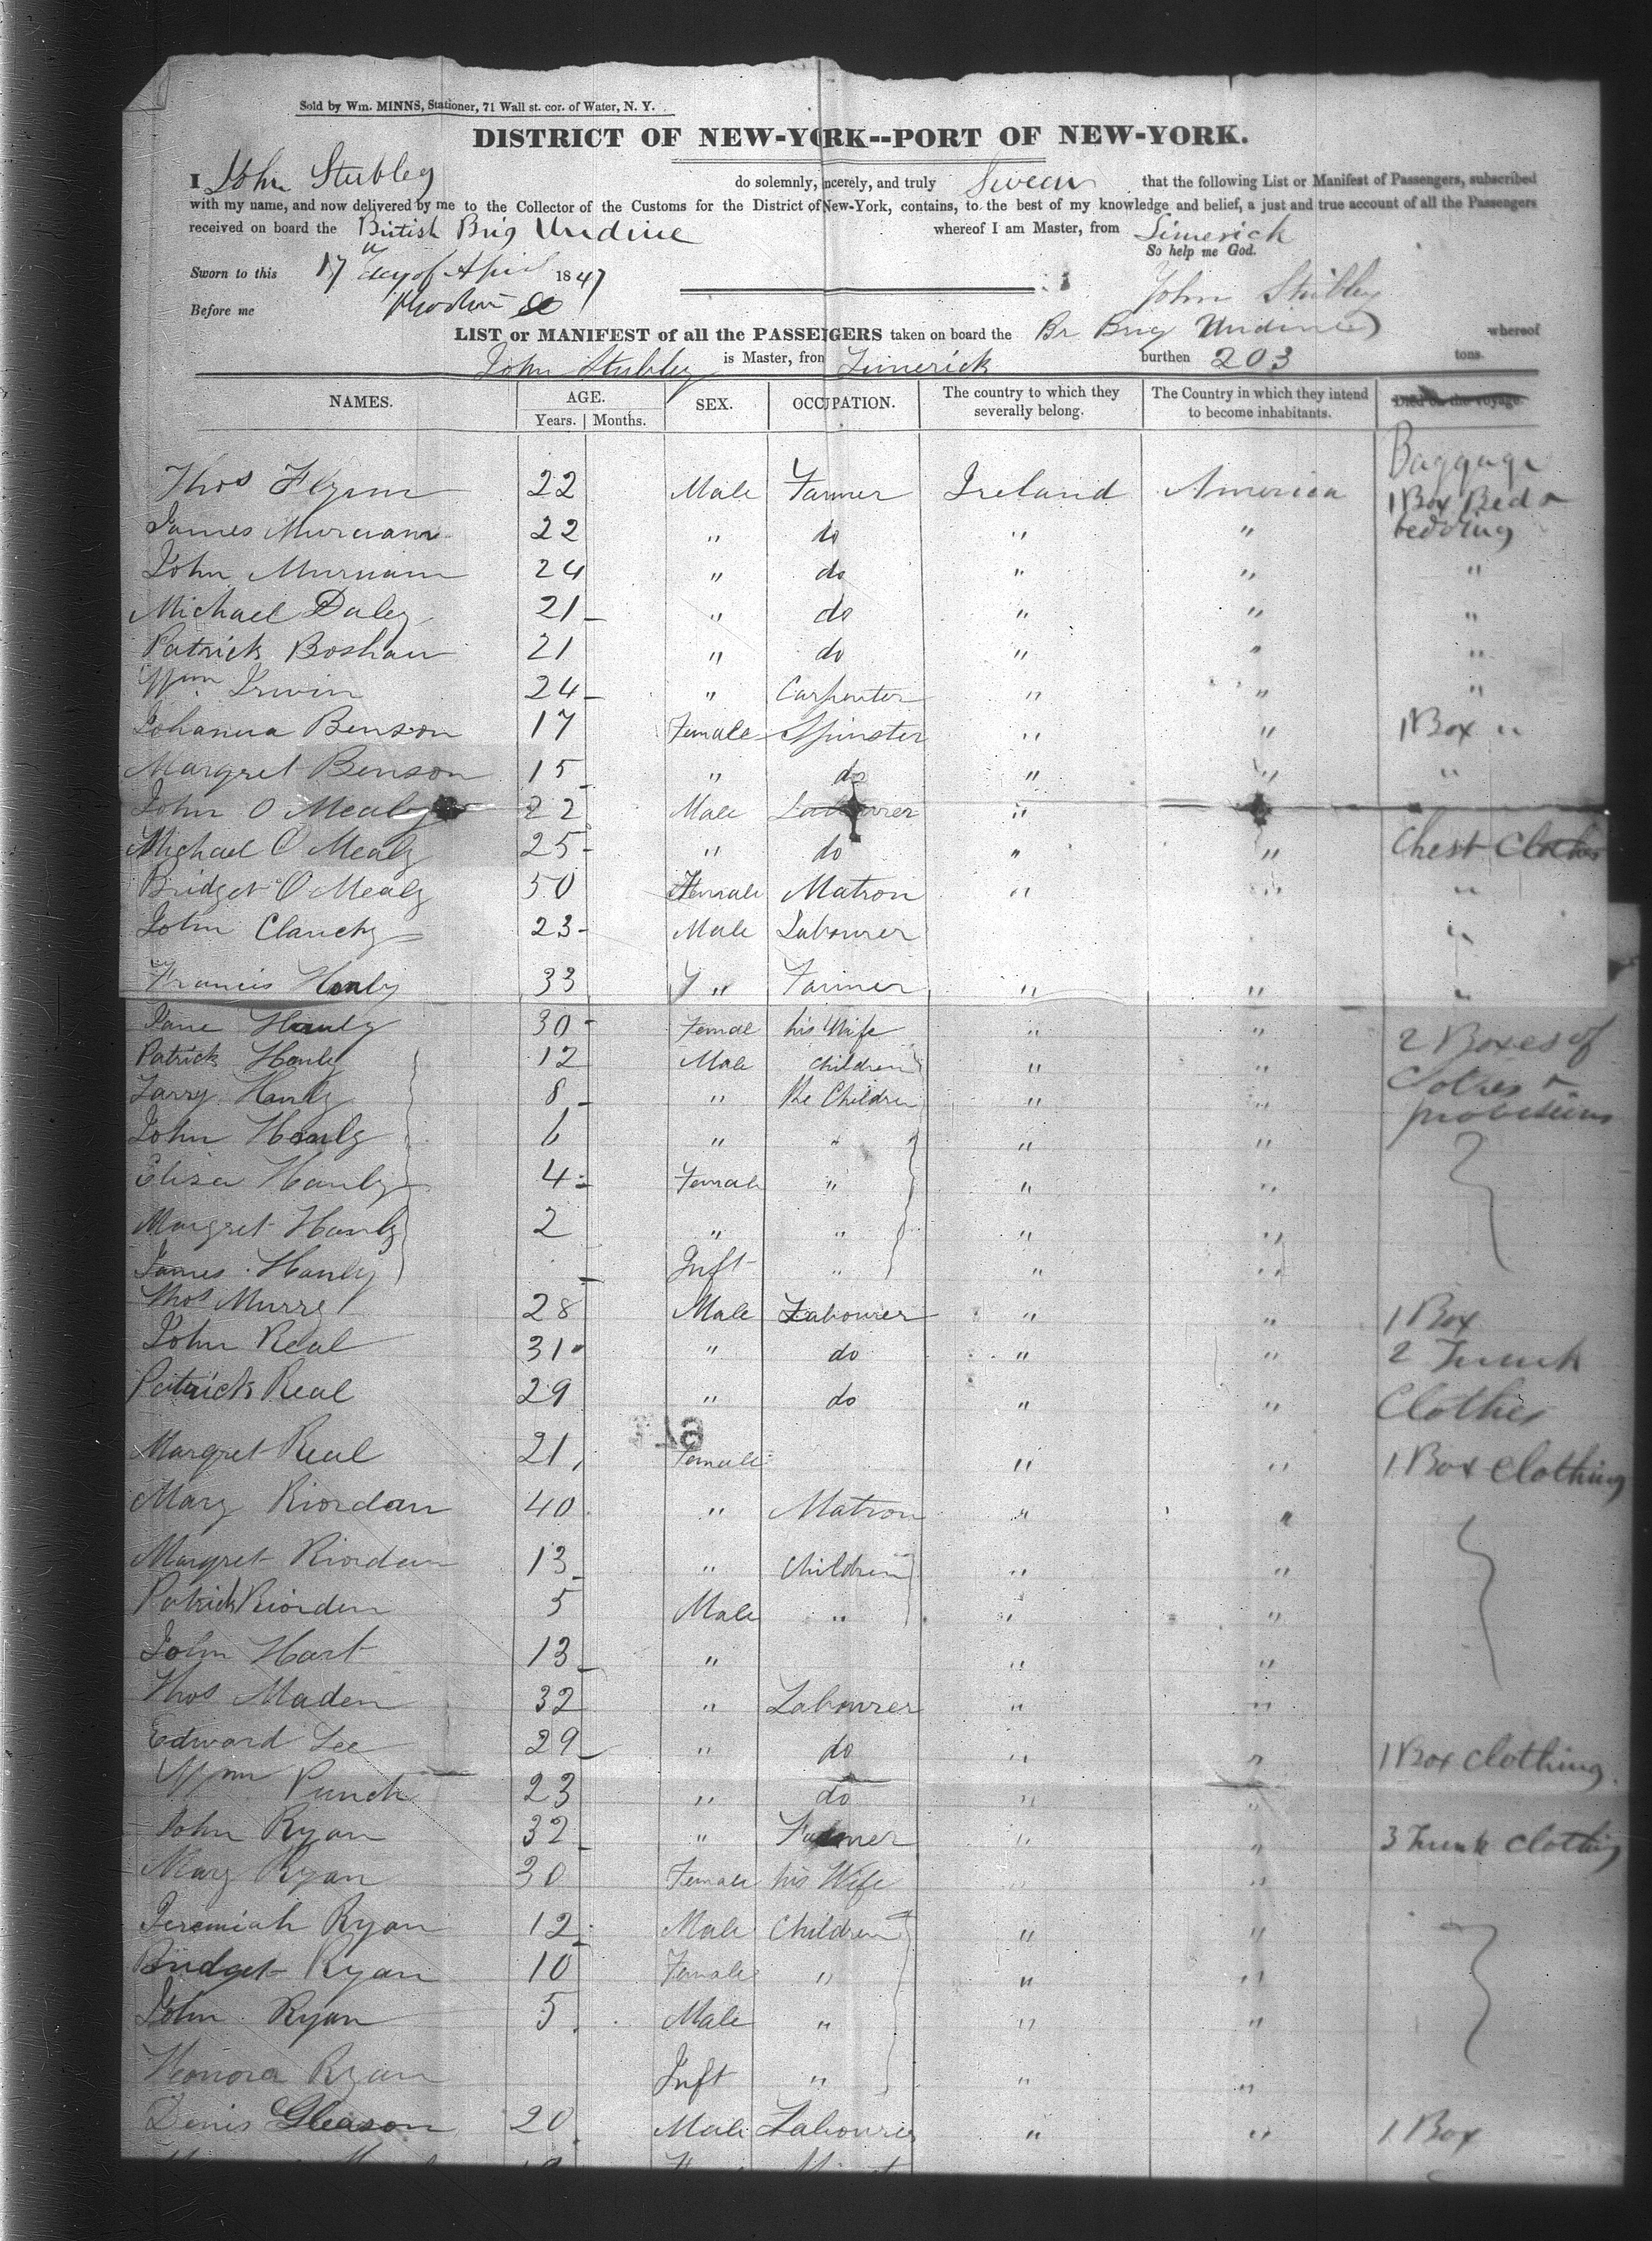 Sold by Wm. MINNS, Stationer, 71 Wall st. cor. of Water, N. Y.
DISTRICT OF NEW-YORK--PORT OF NEW-YORK.
I John Stubley do solemnly, sincerely, and truly Swear that the following List or Manifest of Passengers, subscribed
with my name, and now delivered by me to the Collector of the Customs for the District of New-York, contains, to the best of my knowledge and belief, a just and true account of all the Passengers
received on board the British Brig Undine whereof I am Master, from Limerick
So help me God.
Sworn to this 17 day of April 1847
John Stubley
Before me
LIST or MANIFEST of all the PASSENGERS taken on board the Br Brig Undine whereof
John Stubley is Master, from Limerick burthen 203 tons.
NAMES. AGE. Years. Months. SEX. OCCUPATION. The country to which they severally belong. The Country in which they intend to become inhabitants. Died on the voyage.
Baggage
Thos Flynn 22 Male Farmer Ireland America 1 Box Bed &
James 22 " do " " bedding
John 24 " do " " "
Michael Daley 21 " do " " "
Patrick Boshau 21 " do " " "
Wm Irwin 24 " Carpenter " " "
Johanna Benson 17 Female Spinster " " 1 Box "
Margret Benson 15 " do " " "
John O Mealy 22 Male Labourer "
Michael O Mealy 25 " do " " Chest Clothes
Bridget O Mealy 50 Female Matron " " "
John Clanchy 23 Male Labourer "
Francis Hanly 33 " Farmer " " "
Jane Hanly 30 Female his Wife " "
2 Boxes of
Patrick Hanly 12 Male Children " "
Clothes &
Larry Hanly 8 " Children " "
provisions
John Hanly 6 " " " "
Elisa Hanly 4 Female " " "
Margret Hanly 2 " " " "
James Hanly Inft " " "
Thos Murry 28 Male Labourer " " 1 Box
John Real 31 " do " " 2 Trunk
Patrick Real 29 " do " " Clothes
Margret Real 21 Female " " 1 Box Clothing
Mary Riordan 40 " Matron " "
Margret Riordan 13 " Children " "
Patrick Riordan 5 Male " " "
John Hart 13 " " "
Thos Maden 32 " Labourer " "
Edward Lee 29 " do " " 1 Box Clothing
Wm Punch 23 " do " "
John Ryan 32 " Farmer " " 3 Trunk Clothing
Mary Ryan 30 Female his Wife " "
Jeremiah Ryan 12 Male Children " "
Bridget Ryan 10 Female " " "
John Ryan 5 Male " " "
Honora Ryan Inft " " "
Denis Gleason 20 Male Labourer " " 1 Box